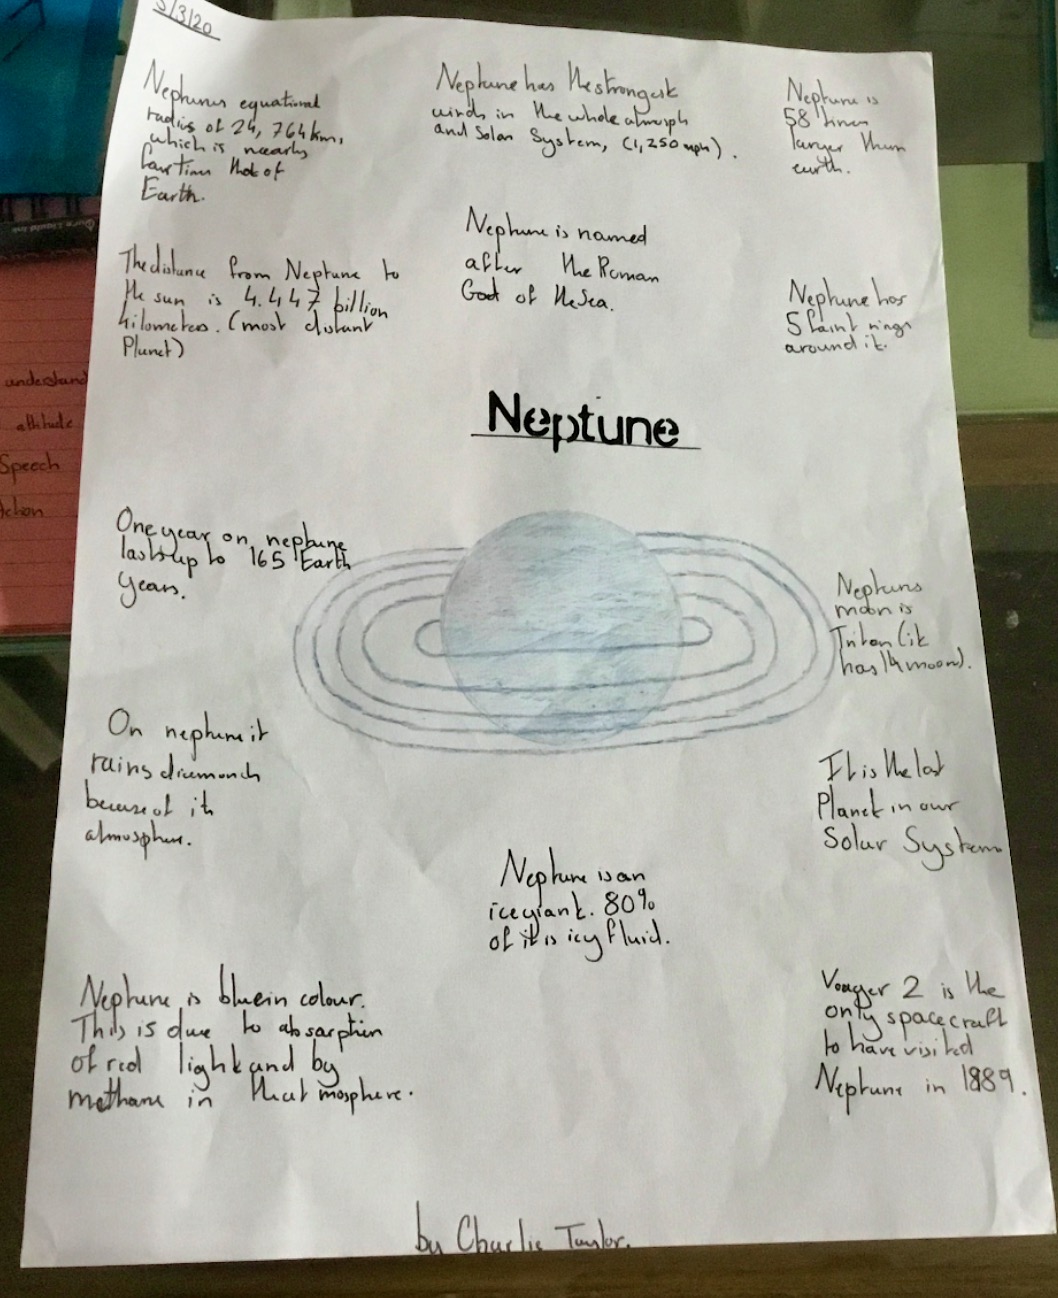 5/3/20
Neptunes equational
radius of 24,764km,
which is nearly
four times that of
Earth.
Neptune has the strongest
winds in the whole atmosph
and Solar System, (1,250 mph).
Neptune is
58 times
larger than
earth.
The distance from Neptune to
the sun is 4.447 billion
kilometers. (most distant
Planet)
Neptune is named
after the Roman
God of the Sea.
Neptune has
5 faint rings
around it.
understand
attitude
Speech
Action
Neptune
One year on neptune
lasts up to 165 Earth
years.
Neptuns
moon is
Triton (it
has 14 moon).
On neptune it
rains diamonds
because of its
atmosphere.
It is the last
Planet in our
Solar System
Neptune is an
ice giant. 80%
of it is icy fluid.
Neptune is blue in colour.
This is due to absorption
of red light and by
methane in that mosphere.
Voager 2 is the
only spacecraft
to have visited
Neptune in 1889.
by Charlie Taylor.